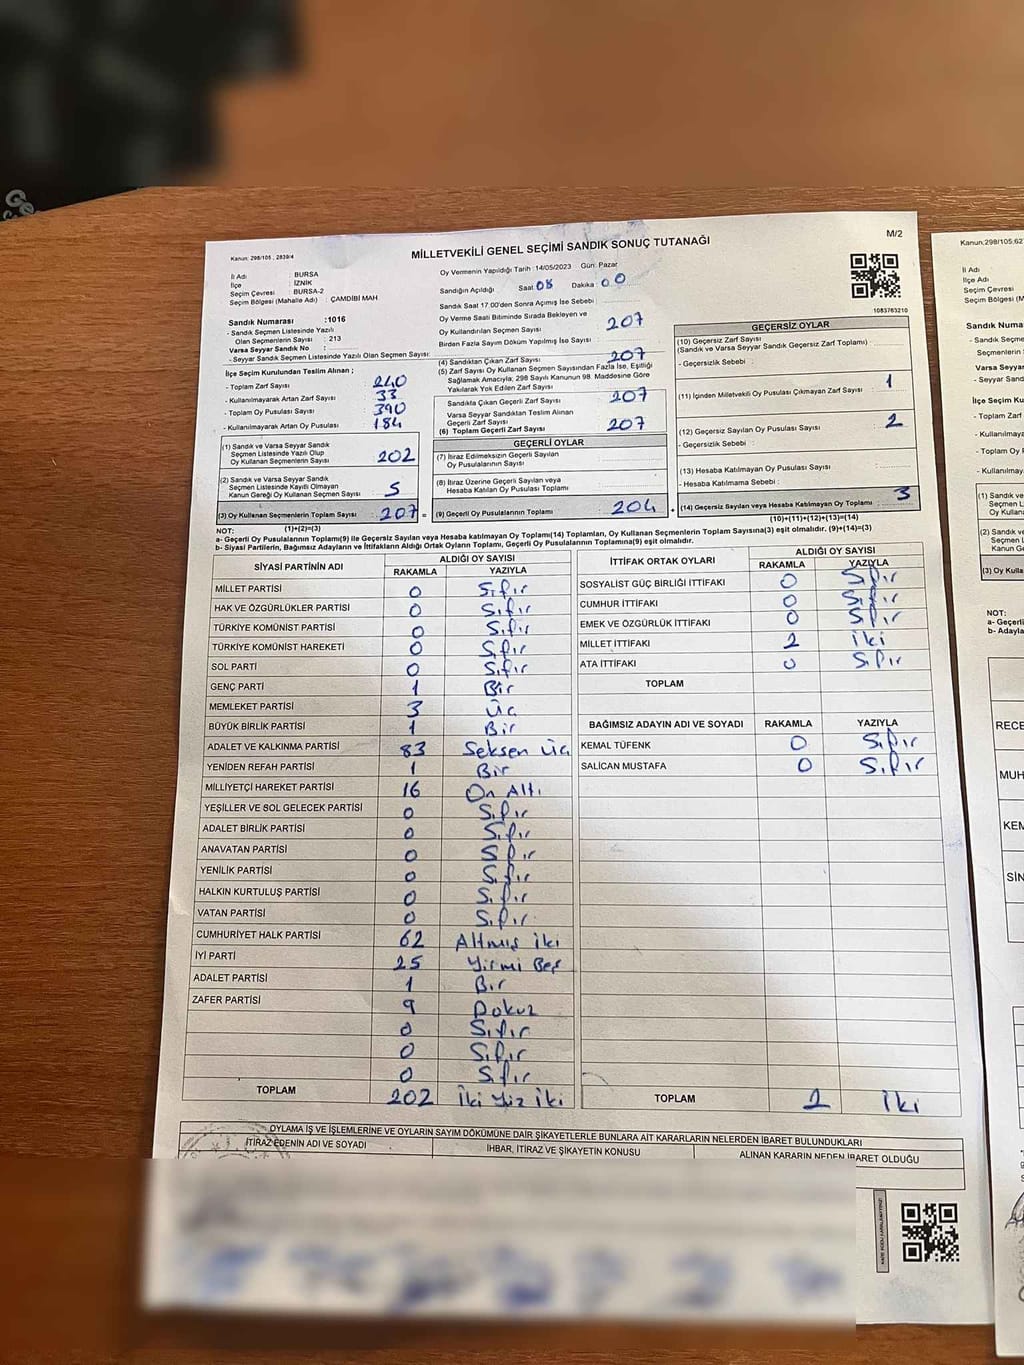 MİLLETVEKİLİ GENEL SEÇİMİ SANDIK SONUÇ TUTANAĞI
M/2
Kanun: 298/105 , 2839/4
İl Adı : BURSA
İlçe : İZNİK
Seçim Çevresi : BURSA-2
Seçim Bölgesi (Mahalle Adı) : ÇAMDİBİ MAH
Sandık Numarası :1016
- Sandık Seçmen Listesinde Yazılı
Olan Seçmenlerin Sayısı : 213
Varsa Seyyar Sandık No :
- Seyyar Sandık Seçmen Listesinde Yazılı Olan Seçmen Sayısı:
İlçe Seçim Kurulundan Teslim Alınan ;
- Toplam Zarf Sayısı 240
- Kullanılmayarak Artan Zarf Sayısı 33
- Toplam Oy Pusulası Sayısı 390
- Kullanılmayarak Artan Oy Pusulası 184
(1) Sandık ve Varsa Seyyar Sandık
Seçmen Listesinde Yazılı Olup
Oy Kullanan Seçmenlerin Sayısı 202
(2) Sandık ve Varsa Seyyar Sandık
Seçmen Listesinde Kayıtlı Olmayan
Kanun Gereği Oy Kullanan Seçmen Sayısı 5
(3) Oy Kullanan Seçmenlerin Toplam Sayısı 207 =
(1)+(2)=(3)
Oy Vermenin Yapıldığı Tarih : 14/05/2023 Gün: Pazar
Sandığın Açıldığı Saat 08 Dakika : 00
Sandık Saat 17.00'den Sonra Açımış İse Sebebi
Oy Verme Saati Bitiminde Sırada Bekleyen ve
Oy Kullandırılan Seçmen Sayısı 207
Birden Fazla Sayım Döküm Yapılmış İse Sayısı
(4) Sandıktan Çıkan Zarf Sayısı 207
(5) Zarf Sayısı Oy Kullanan Seçmen Sayısından Fazla İse, Eşitliği
Sağlamak Amacıyla; 298 Sayılı Kanunun 98. Maddesine Göre
Yakılarak Yok Edilen Zarf Sayısı
Sandıkta Çıkan Geçerli Zarf Sayısı 207
Varsa Seyyar Sandıktan Teslim Alınan
Geçerli Zarf Sayısı
(6) Toplam Geçerli Zarf Sayısı 207
GEÇERLİ OYLAR
(7) İtiraz Edilmeksizin Geçerli Sayılan
Oy Pusulalarının Sayısı
(8) İtiraz Üzerine Geçerli Sayılan veya
Hesaba Katılan Oy Pusulası Toplamı
(9) Geçerli Oy Pusulalarının Toplamı 204 +
1083763210
GEÇERSİZ OYLAR
(10) Geçersiz Zarf Sayısı
(Sandık ve Varsa Seyyar Sandık Geçersiz Zarf Toplamı)
- Geçersizlik Sebebi :
(11) İçinden Milletvekili Oy Pusulası Çıkmayan Zarf Sayısı 1
(12) Geçersiz Sayılan Oy Pusulası Sayısı 2
- Geçersizlik Sebebi :
(13) Hesaba Katılmayan Oy Pusulası Sayısı
- Hesaba Katılmama Sebebi :
(14) Geçersiz Sayılan veya Hesaba Katılmayan Oy Toplamı 3
(10)+(11)+(12)+(13)=(14)
NOT:
a- Geçerli Oy Pusulaları Toplamı(9) ile Geçersiz Sayılan veya Hesaba katılmayan Oy Toplamı(14) Toplamları, Oy Kullanan Seçmenlerin Toplam Sayısına(3) eşit olmalıdır. (9)+(14)=(3)
b- Siyasi Partilerin, Bağımsız Adayların ve İttifakların Aldığı Ortak Oyların Toplamı, Geçerli Oy Pusulalarının Toplamına(9) eşit olmalıdır.
SİYASİ PARTİNİN ADI ALDIĞI OY SAYISI
RAKAMLA YAZIYLA
MİLLET PARTİSİ 0 Sıfır
HAK VE ÖZGÜRLÜKLER PARTİSİ 0 Sıfır
TÜRKİYE KOMÜNİST PARTİSİ 0 Sıfır
TÜRKİYE KOMÜNİST HAREKETİ 0 Sıfır
SOL PARTİ 0 Sıfır
GENÇ PARTİ 1 Bir
MEMLEKET PARTİSİ 3 Üç
BÜYÜK BİRLİK PARTİSİ 1 Bir
ADALET VE KALKINMA PARTİSİ 83 Seksen Üç
YENİDEN REFAH PARTİSİ 1 Bir
MİLLİYETÇİ HAREKET PARTİSİ 16 On Altı
YEŞİLLER VE SOL GELECEK PARTİSİ 0 Sıfır
ADALET BİRLİK PARTİSİ 0 Sıfır
ANAVATAN PARTİSİ 0 Sıfır
YENİLİK PARTİSİ 0 Sıfır
HALKIN KURTULUŞ PARTİSİ 0 Sıfır
VATAN PARTİSİ 0 Sıfır
CUMHURİYET HALK PARTİSİ 62 Altmış iki
İYİ PARTİ 25 Yirmi Beş
ADALET PARTİSİ 1 Bir
ZAFER PARTİSİ 9 Dokuz
0 Sıfır
0 Sıfır
0 Sıfır
TOPLAM 202 İki Yüz İki
İTTİFAK ORTAK OYLARI ALDIĞI OY SAYISI
RAKAMLA YAZIYLA
SOSYALİST GÜÇ BİRLİĞİ İTTİFAKI 0 Sıfır
CUMHUR İTTİFAKI 0 Sıfır
EMEK VE ÖZGÜRLÜK İTTİFAKI 0 Sıfır
MİLLET İTTİFAKI 2 iki
ATA İTTİFAKI 0 Sıfır
TOPLAM
BAĞIMSIZ ADAYIN ADI VE SOYADI RAKAMLA YAZIYLA
KEMAL TÜFENK 0 Sıfır
SALİCAN MUSTAFA 0 Sıfır
TOPLAM 2 İki
OYLAMA İŞ VE İŞLEMLERİNE VE OYLARIN SAYIM DÖKÜMÜNE DAİR ŞİKAYETLERLE BUNLARA AİT KARARLARIN NELERDEN İBARET BULUNDUKLARI
İTİRAZ EDENİN ADI VE SOYADI İHBAR, İTİRAZ VE ŞİKAYETİN KONUSU ALINAN KARARIN NEDEN İBARET OLDUĞU
Kanun:298/105:62
İl Adı
İlçe Adı
Seçim Çevresi
Seçim Bölgesi (M
Sandık Numa
- Sandık Seçme
Seçmenlerin
Varsa Seyya
- Seyyar Sand
İlçe Seçim Ku
- Toplam Zarf
- Kullanılmaya
- Toplam Oy P
- Kullanılmay
(1) Sandık
Seçmen L
Oy Kullan
(2) Sandık v
Seçmen L
Kanun Ge
(3) Oy Kulla
NOT:
a- Geçerli
b- Adayla
RECE
MUH
KEM
SİN